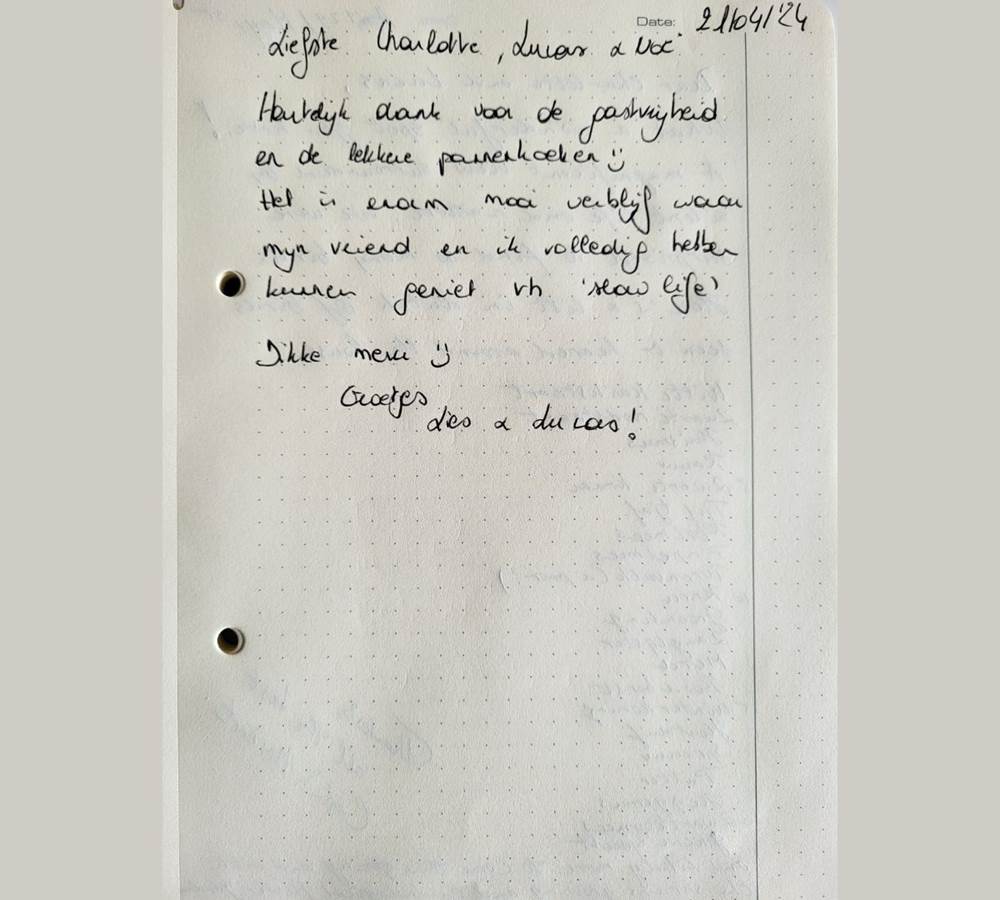 Date: 21/04/'24
Liefste Charlotte, Lucas & Noé
Hartelijk dank voor de gastvrijheid
en de lekkere pannenkoeken :)
Het is enorm mooi verblijf waar
mijn vriend en ik volledig hebben
kunnen geniet vh 'slow life'
Dikke merci :)
Groetjes
Lies & Lucas!